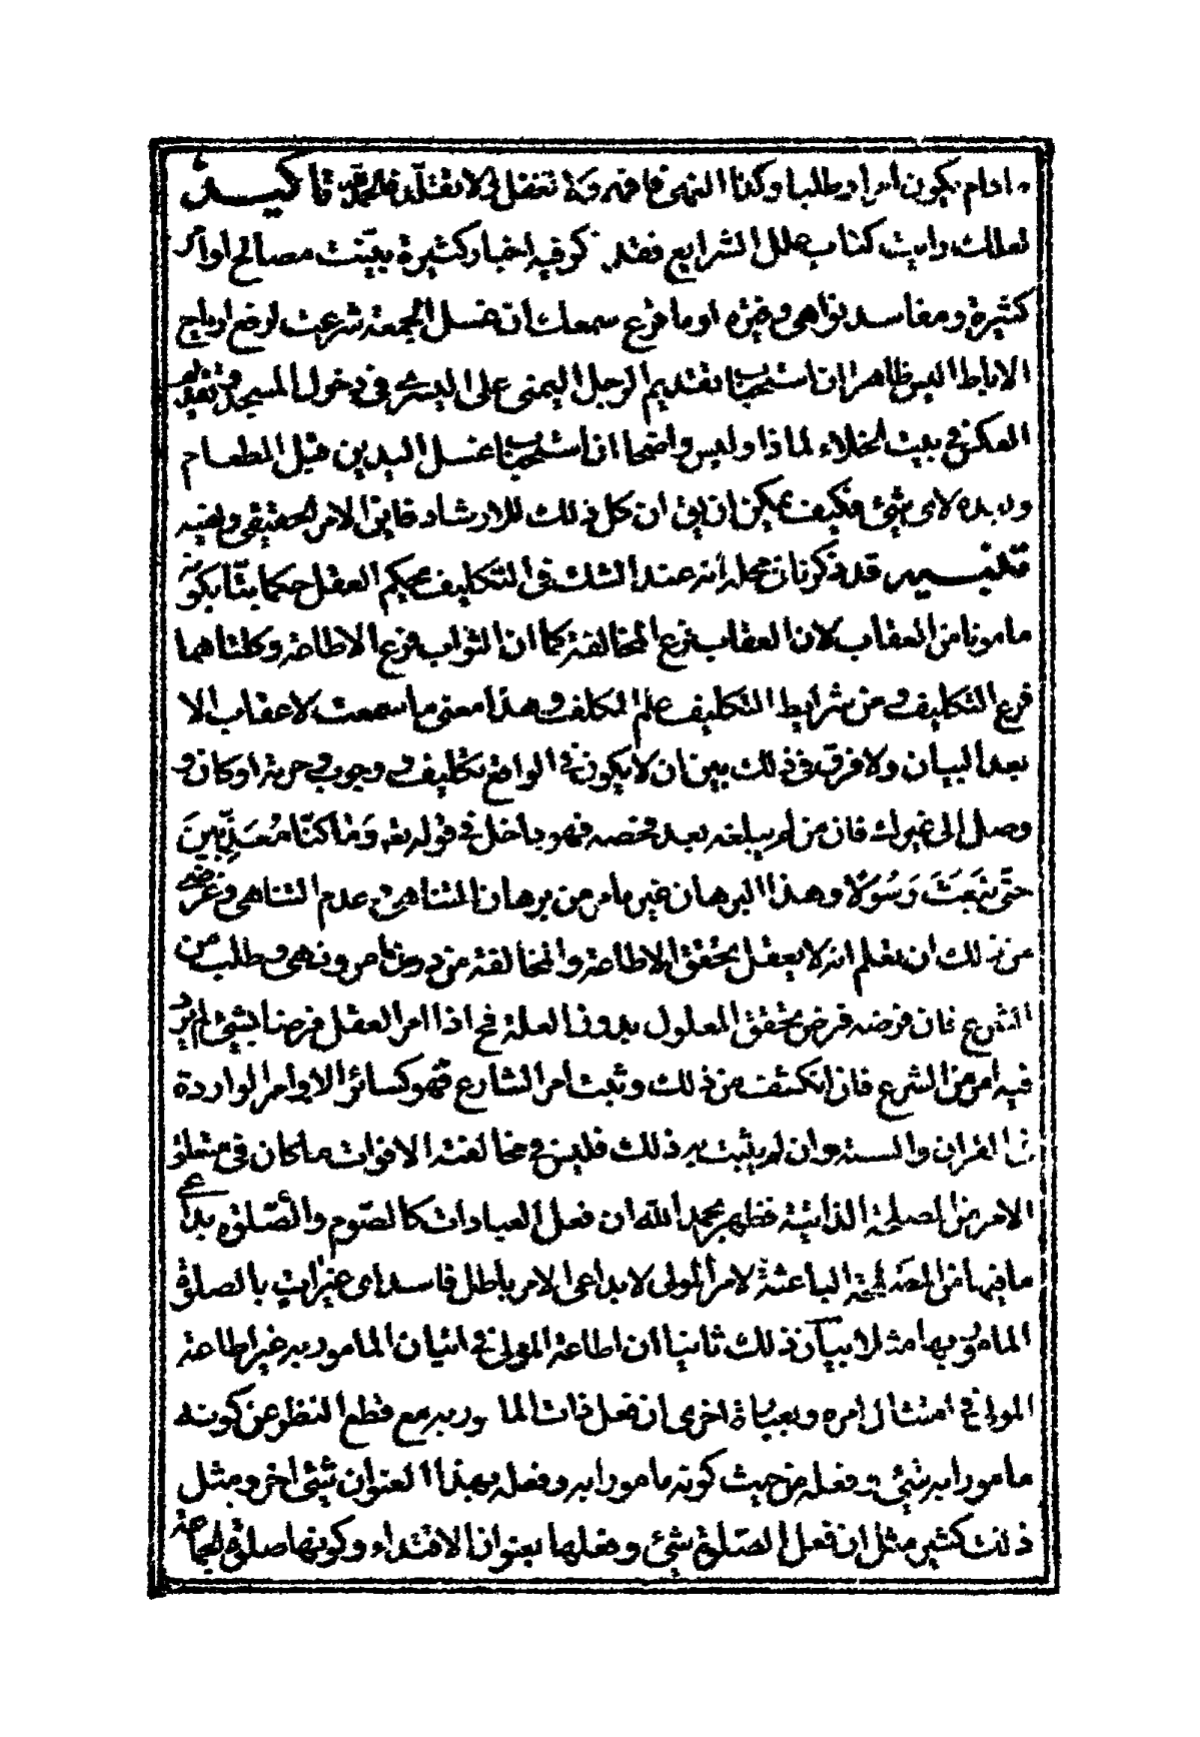 مادام يكون امرا وطلبا وكذا النهى فافهم ولا تغفل ولا تقلد تاكيد
لعلك رايت كتاب علل الشرايع فقد ذكر فيه اخبار كثيرة بيّنت مصالح اوامر
كثيرة ومفاسد نواهى وغيره اوما قرع سمعك ان غسل الجمعة شرعت لرفع ارياح
الاباط اليس ظاهرا ان استحباب تقديم الرجل اليمنى على اليسرى فى دخول المسجد وتقديم
العكس فى بيت الخلاء لماذا وليس واضحا ان استحباب غسل اليدين قبل الطعام
وبعده لاى شئ فكيف يمكن ان يق ان كل ذلك للارشاد فاين الامر الحقيقى وفيه
تفسير قد ذكرنا فى محله انه عند الشك فى التكليف يحكم العقل حكما بتّا بكونه
مامونا من العقاب لان العقاب فرع المخالفة كما ان الثواب فرع الاطاعة وكلتاهما
فرع التكليف ومن شرايط التكليف علم المكلف وهذا معنى ما سمعت لا عقاب الا
بعد البيان ولا فرق فى ذلك بين ان لا يكون فى الواقع تكليف و وجوب و حرمة او كان و
وصل الى غيرك فان من لم يبلغه بعد فحصه فهو داخل فى قوله تعه وَمٰا كنّا مُعَذِّبينَ
حتّى نَبعَثَ رَسُولًا وهذا البرهان غير مامر من برهان التناهى وعدم التناهى وغرضى
من ذلك ان تعلم انه لا يعقل تحقق الاطاعة والمخالفة من دون امر ونهى وطلب من
الشرع فان فرضه فرض تحقق المعلول بدون العلة فح اذا امر العقل فرضا بشئ لم يرد
فيه امر من الشرع فان انكشف من ذلك وثبت امر الشارع فهو كسائر الاوامر الواردة
فى القران والسنة وان لم يثبت به ذلك فليس فى مخالفته الا فوات ما كان فى متعلق
الامر من المصلحة الذاتية فظهر بحمد الله ان فعل العبادات كالصّوم والصّلوة بداعى
ما فيها من المصلحة الباعثة لامر المولى لا بداعى الامر باطل فاسد اى غير ات بالصلوة
المامور بها مثلا بيان ذلك ثانيا ان اطاعة المولى فى اتيان المامور به غير اطاعة
المولى فى امتثال امره وبعبارة اخرى ان فعل ذات المامور به مع قطع النظر عن كونه
مامورا به شئ و فعله من حيث كونه مامورا به وفعله بهذا العنوان شئ اخر ومثل
ذلك كثير مثل ان فعل الصّلوة شئ وفعلها بعنوان الاقتداء وكونها صلوة الجماعة